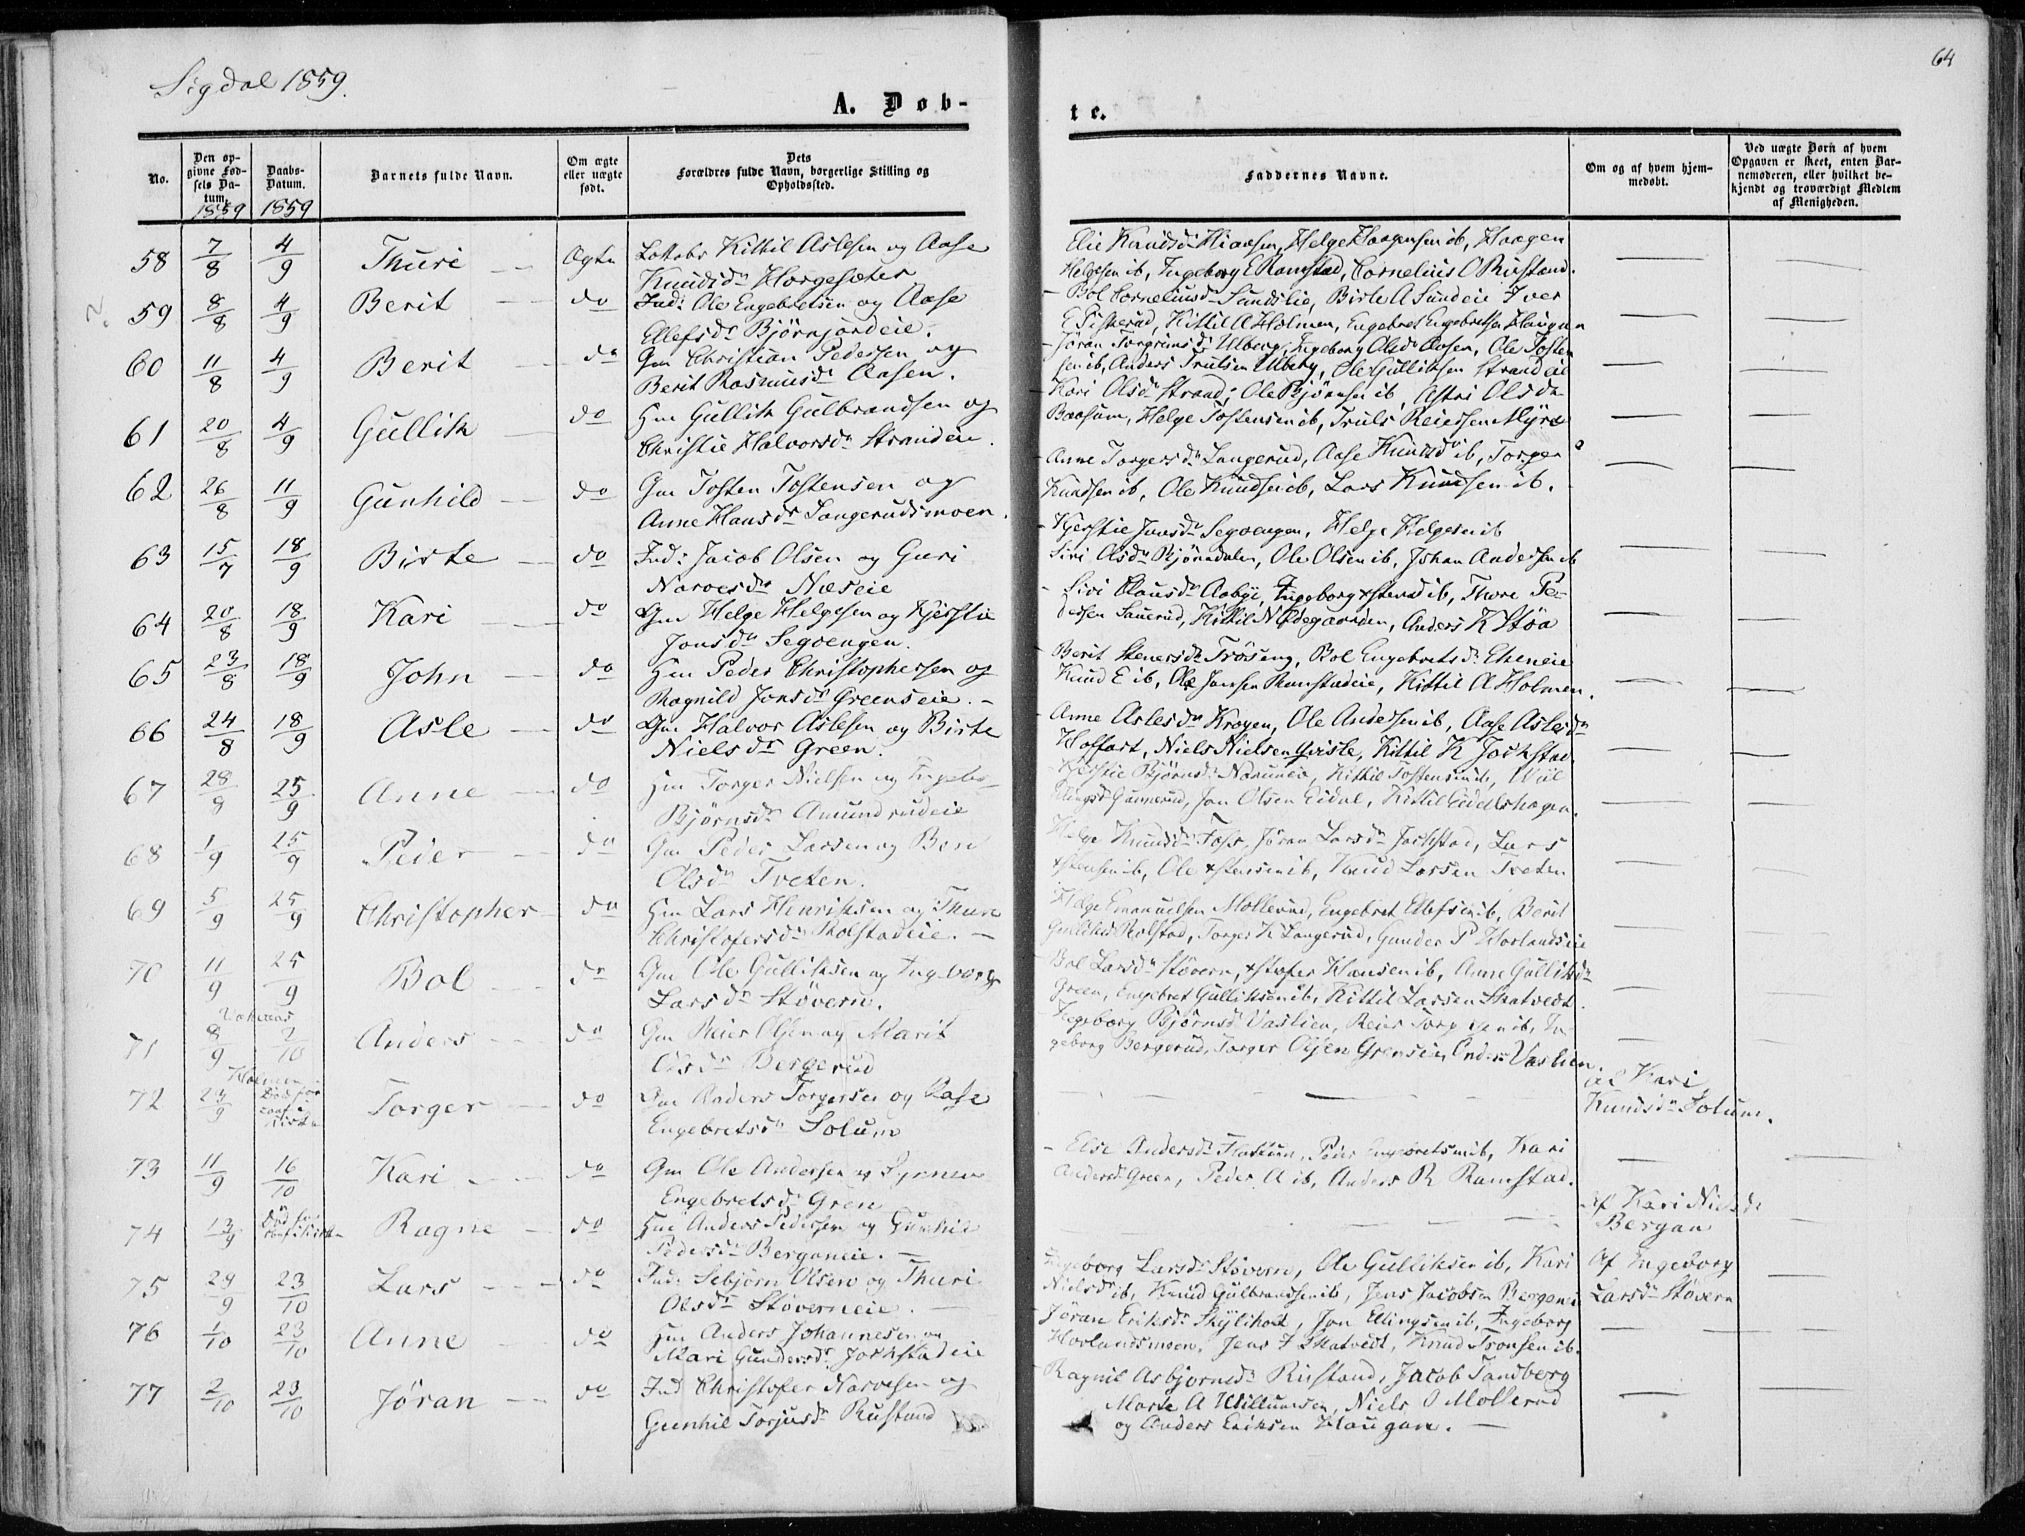 64
Sigdal 1859.
A. Døb-
te.
No.
Den op-
givne Fød-
sels Da-
tum.
1859
Daabs-
Datum.
1859
Barnets fulde Navn.
Om ægte
eller uægte
født.
Dets
Forældres fulde Navn, borgerlige Stilling og
Opholdssted.
Faddernes Navne.
Om og af hvem hjem-
medøbt.
Ved uægte Børn af hvem
Opgaven er skeet, enten Bar-
nemoderen, eller hvilket be-
kjendt og troværdigt Medlem
af Menigheden.
58 7/8 4/9 Thuri Ægte Kittil Aslesen og Aase
Knudsdr Horgesæter
Helge Haagensen ib, Haagen
Helgesen ib, Ingeborg E Ramstad, Cornelius O Rustand.
59 8/8 4/9 Berit do Ind: Ole Engebretsen og Aase
Ellefsdr Bjørnjordeie.
Bol Corneliusdr Sundslie, Birte A Sundeie Iver
E Fiskerud, Kittil A Holmen, Engebret Engebretsen Haugan
60 11/8 4/9 Berit do Gm Christian Pedersen og
Berit Rasmusdr Aasen.
Jøran Torgrimsdr Ulberg, Ingeborg Olsdr Aasen, Ole Tosten
sen ib, Anders Trulsen Ulberg, Ole Gulliksen Strandeie
61 20/8 4/9 Gullik do Hm Gullik Gulbrandsen og
Christie Halvorsdr Strandeie.
Kari Olsdr Strand, Ole Bjørnsen ib, Astri Olsdr
Baasum, Helge Tostensen ib, Truls Reiersen Myra
62 26/8 11/9 Gunhild do Gm Tosten Tostensen og
Anne Hansdr Langerudsmoen.
Anne Torgersdr Langerud, Aase Knudsdr ib, Torger
Knudsen ib, Ole Knudsen ib, Lars Knudsen ib.
63 15/7 18/9 Birte do Ind: Jacob Olsen og Guri
Narvesdr Næseie
Kjerstie Jonsdr Segvengen, Helge Helgesen ib
Siri Olsdr Bjørndalen, Ole Olsen ib, Johan Andersen ib
64 20/8 18/9 Kari do Gm Helge Helgesen og Kjerstie
Jonsdr Segvengen.
Siri Clausdr Aabye, Ingeborg ib, Thore Pe-
dersen Sauerud, Kittil N Ødegaarden, Anders K Støa
65 23/8 18/9 John do Hm Peder Christophersen og
Ragnild Jonsdr Greenseie.
Berit Stenersdr Trøseng, Bol Engebretsdr Ekeneie
Knud E ib, Ole Jonsen Ramstadeie, Kittil A Holmen.
66 24/8 18/9 Asle do Gm Halvor Aslesen og Birte
Nielsdr Green.
Anne Aslesdr Kragen, Ole Andersen ib, Aase Aslesdr
Hoffart, Niels Nielsen Qvisle, Kittil K Jokstad
67 28/8 25/9 Anne do Hm Torger Nielsen og Ingebor
Bjørnsdr Amundrudeie
Kjerstie Bjørnsdr, Kittil Tostensen ib,
Gunnerud, Jon Olsen Eidal, Kittil Eidalshagen.
68 1/9 25/9 Peder do Gm Peder Larsen og Beret
Olsdr Tveten.
Helge Knudsdr Foss, Jøran Larsdr Jokstad, Lars
ib, Ole ib, Knud Larsen Tveten
69 5/9 25/9 Christopher do Hm Lars Henriksen og Thure
Christofersdr Kolstadeie.
Helge Emanuelsen Mollerud, Engebret Ellefsen ib, Berit
Gulliksdr Kolstad, Torger K Langerud, Gunder P Horlandseie
70 11/9 25/9 Bol do Gm Ole Gulliksen og Ingeborg
Larsdr Støvern.
Bol Larsdr Støvern, Hansen ib, Anne Gulliksdr
Green, Engebret Gulliksen ib, Kittil Larsen Skatvedt.
71 8/9 2/10 Anders do Gm Reier Olsen og Marit
Olsdr Bergerud
Ingeborg Bjørnsdr Vaslien, Reier Torgersen ib, In-
geborg Bergerud, Torger Olsen Grenseie, Anders Vaslien.
72 Holmen 23/9 Død før
conf i
Kirken Torger do Gm Anders Torgersen og Aase
Engebretsdr Solum
af Kari
Knudsdr Solum.
73 11/9 16/10 Kari do Gm Ole Andersen og
Engebretsdr Gren
Else Andersdr Flattum, Peder Engebretsen ib, Kari
Andersdr Green, Peder A ib, Anders R Ramstad.
74 13/9 Død før
conf i Kirken Ragne do Hm Anders Pedersen og Gunhil
Pedersdr Berganeie.
Af Kari Nielsdr
Bergan
75 24/9 23/10 Lars do Ind: Sebjørn Olsen og Thuri
Olsdr Støverneie.
Ingeborg Larsdr Støvern, Ole Gulliksen ib, Kari
Nielsdr ib, Knud Gulbrandsen ib, Jens Jacobsen Berganeie
Af Ingeborg
Larsdr Støvern
76 1/10 23/10 Anne do Hm Anders Johannesen og
Mari Gundersdr Jokstadeie
Jøran Eriksdr Skylihort, Jon Ellingsen ib, Ingeborg
Horlandsmoen, Jens J Skatvedt, Knud Tronsen ib.
77 2/10 23/10 Jøran do Ind Christofer Narvesen og
Gunhil Torjusdr Rustand
Ragnil Asbjørnsdr Rustand, Jacob Sandberg
Marte A Willumsen, Niels O Mollerud
og Anders Eriksen Haugan.